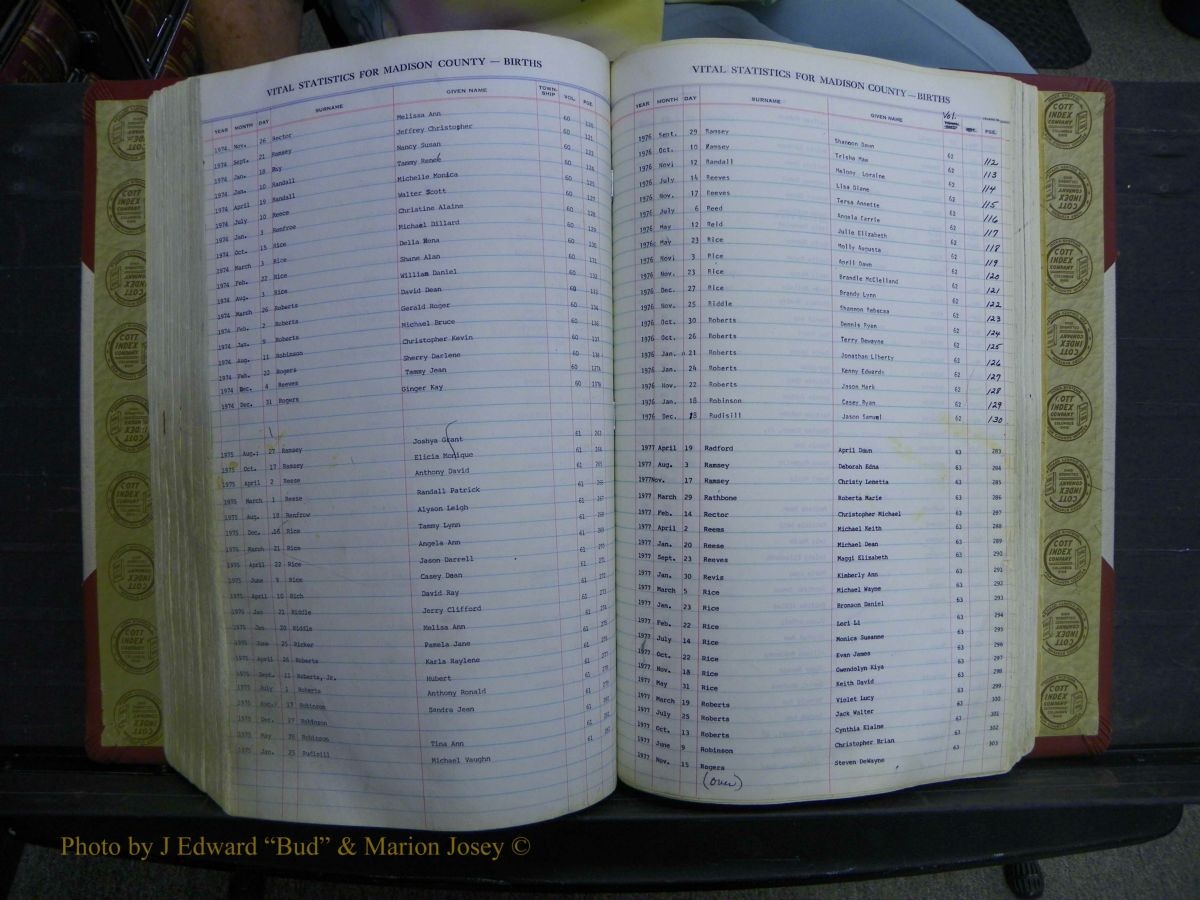 VITAL STATISTICS FOR MADISON COUNTY — BIRTHS
YEAR MONTH DAY SURNAME GIVEN NAME TOWN-SHIP VOL. PGE.
1974 Nov. 26 Rector Melissa Ann 60
1974 Sept. 21 Ramsey Jeffrey Christopher 60 121
1974 Jan. 18 Ray Nancy Susan 60
1974 Jan. 10 Randall Tammy Reneé 60
1974 April 19 Randall Michelle Monica 60
1974 July 10 Reece Walter Scott 60
1974 Jan. 3 Renfroe Christine Alaine 60
1974 Oct. 15 Rice Michael Dillard 60
1974 March 3 Rice Della Mona 60
1974 Feb. 22 Rice Shane Alan 60
1974 Aug. 3 Rice William Daniel 60
1974 March 26 Roberts David Dean 60
1974 Feb. 2 Roberts Gerald Roger 60
1974 Jan. 9 Roberts Michael Bruce 60
1974 Aug. 11 Robinson Christopher Kevin 60
1974 Feb. 22 Rogers Sherry Darlene 60
1974 Dec. 4 Reeves Tammy Jean 60 137A
1974 Dec. 31 Rogers Ginger Kay 60 137B
1975 Aug. 27 Ramsey Joshya Grant 61 263
1975 Oct. 17 Ramsey Elicia Monique 61 264
1975 April 2 Reese Anthony David 61 265
1975 March 1 Reese Randall Patrick 61 266
1975 Aug. 18 Renfrow Alyson Leigh 61 267
1975 Dec. 16 Rice Tammy Lynn 61 268
1975 March 21 Rice Angela Ann 61 269
1975 April 22 Rice Jason Darrell 61 270
1975 June 9 Rice Casey Dean 61 271
1975 April 10 Rich David Ray 61 272
1975 Jan 21 Riddle Jerry Clifford 61 273
1975 Jan. 20 Riddle Melisa Ann 61 274
1975 June 25 Ricker Pamela Jane 61 275
1975 April 26 Roberts Karla Raylene 61 276
1975 Sept. 11 Roberts, Jr. Hubert 61 277
1975 July 1 Roberts Anthony Ronald 61 278
1975 Aug. 17 Robinson Sandra Jean 61 279
1975 Dec. 27 Robinson
1975 May 28 Robinson Tina Ann 61
1975 Jan. 25 Rudisill Michael Vaughn 61 282
VITAL STATISTICS FOR MADISON COUNTY—BIRTHS
YEAR MONTH DAY SURNAME GIVEN NAME Vol. PGE.
1976 Sept. 29 Ramsey Shannon Dawn 62 112
1976 Oct. 10 Ramsey Trisha Mae 62 113
1976 Novi 12 Randall Melony Loraine 62 114
1976 July 14 Reeves Lisa Diane 62 115
1976 Nov. 17 Reeves Tersa Annette 62 116
1976 July 6 Reed Angela Carrie 62 117
1976 May 12 Reid Julie Elizabeth 62 118
1976 May 23 Rice Molly Augusta 62 119
1976 Novi 3 Rice April Dawn 62 120
1976 Nov. 23 Rice Brandie McClelland 62 121
1976 Dec. 27 Rice Brandy Lynn 62 122
1976 Nov. 25 Riddle Shannon Rebecca 62 123
1976 Oct. 30 Roberts Dennis Ryan 62 124
1976 Oct. 26 Roberts Terry Dewayne 62 125
1976 Jan. 21 Roberts Jonathan Liberty 62 126
1976 Jan. 24 Roberts Kenny Edwards 62 127
1976 Nov. 22 Roberts Jason Mark 62 128
1976 Jan. 18 Robinson Casey Ryan 62 129
1976 Dec. 13 Rudisill Jason Samuel 62 130
1977 April 19 Radford April Dawn 63 283
1977 Aug. 3 Ramsey Deborah Edna 63 284
1977Nov. 17 Ramsey Christy Lenetta 63 285
1977 March 29 Rathbone Roberta Marie 63 286
1977 Feb. 14 Rector Christopher Michael 63 287
1977 April 2 Reems Michael Keith 63 288
1977 Jan. 20 Reese Michael Dean 63 289
1977 Sept. 23 Reeves Maggi Elizabeth 63 290
1977 Jan. 30 Revis Kimberly Ann 63 291
1977 March 5 Rice Michael Wayne 63 292
1977 Jan. 23 Rice Bronson Daniel 63 293
1977 Feb. 22 Rice Lori Li 63 294
1977 July 14 Rice Monica Susanne 63 295
1977 Oct. 22 Rice Evan James 63 296
1977 Nov. 18 Rice Gwendolyn Kiya 63 297
1977 May 31 Rice Keith David 63 298
1977 March 19 Roberts Violet Lucy 63 299
1977 July 25 Roberts Jack Walter 63 300
1977 Oct. 13 Roberts Cynthia Elaine 63 301
1977 June 9 Robinson Christopher Brian 63 302
1977 Nov. 15 Rogers Steven DeWayne 63 303
(over)
COTT INDEX COMPANY
Photo by J Edward “Bud” & Marion Josey ©